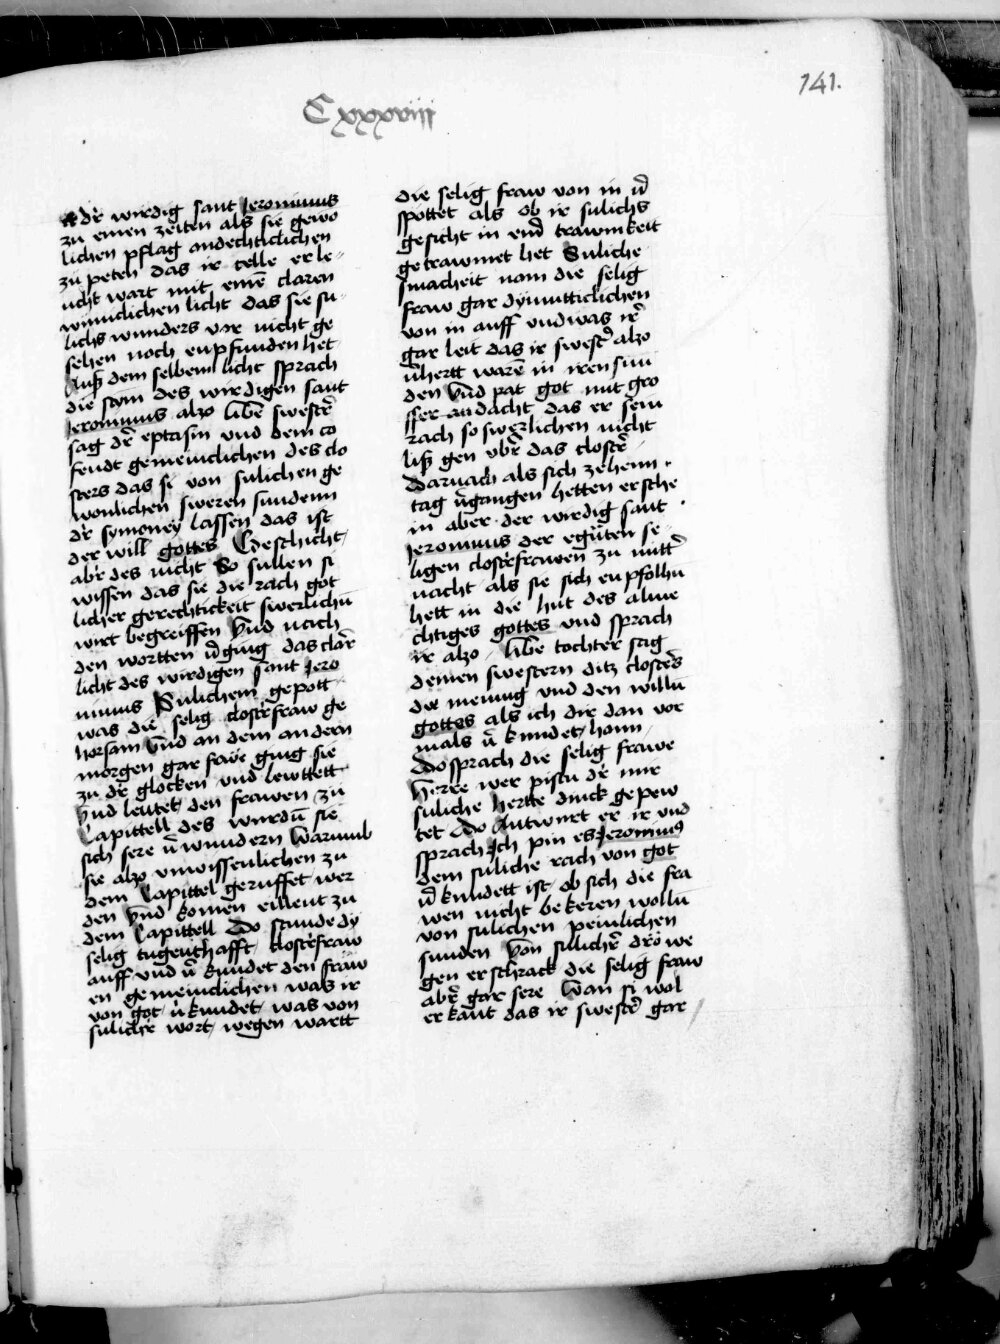 141.
Cxxxviij
dr̃ wirdig sant Jeronimus
zu einen zeiten als sie gewo
lichen pflag andechticlichen
zu peten das ir celle erle-
ucht wart mit einē claren
wimiclichen licht das sie su-
lichs wunders vor nicht ge
sehen noch enpfunden het
Auß dem selbem licht sprach
die stym des wirdigen sant
Jeronimus also libe swestr̃
sag dr̃ eptasin vnd dem co
fendt gemeinclichen des clo
sters das si von sulichen ge
wonlichen sweren sundenn
dr̃ symoney lassen das ist
der will gottes Geschicht
abr̃ des nicht So sullen si
wissen das sie die rach got
licher gerechtickeit swerlichn̄
wirt begreiffen Vnd nach
den wortten v̄ging das clar̃
licht des wirdigen sant Jero
nimus Sulichem gepott
was die selig clostr̃fraw ge
horsam Vnd an dem andern
morgen gar frwe ging sie
zu dr̃ glocken vnd lewttett
Vnd leutet den frawen zu
Capittell des wurdn̄ sie
sich sere v̄wundern Warumb
sie also vnwissenlichen zu
dem Capittel geruffet wer
den Vnd komen eillent zu
dem Capittell Do stunde dy
selig tugenthafft klostr̃fraw
auff vnd v̄kundet den fraw
en gemeinclichen was ir
von got v̄kundet was von
sulichr̃ wort wegen wartt
die selig fraw von in v̄
spottet als ob ir sulichs
gesicht in eind trawmkeit
getrawmet het Suliche
smacheit nam die selig
fraw gar dymutticlichen
von in auff vnd was ir̃
gar leit das ir swestr̃ also
v̄hertt warē in iren sun
den Vnd pat got mit gro
sser andacht das er sein
rach so swerlichen nicht
liß gen vbr̃ das clostr̃
Darnach als sich zehenn
tag v̄gangen hetten ersche
in aber der wirdig sant
Jeronimus der egūten se-
ligen clostr̃frawen zu mittr̃
nacht als sie sich enpfolhn
hett in die hut des alme
chtiges gottes vnd sprach
ir also libe tochter sag
deinen swestern ditz closters
die meinug vnd den willn̄
gottes als ich dir dan vor
mals v̄kundet honn
Do sprach die selig frawe
Herre wer pistu dr̃ mir
suliche hertte dinck gepew
tet Do Antwurt er ir vnd
sprach Ich pin es Jeronimus
dem suliche rach von got
v̄kundett ist ob sich die fra
wen nicht bekeren wolln̄
von sulichen peinlichen
sunden Von sulichr̃ dröwe
gen erschrack die selig fraw
abr̃ gar sere Wan si wol
erkant das ir swestr̃ gar